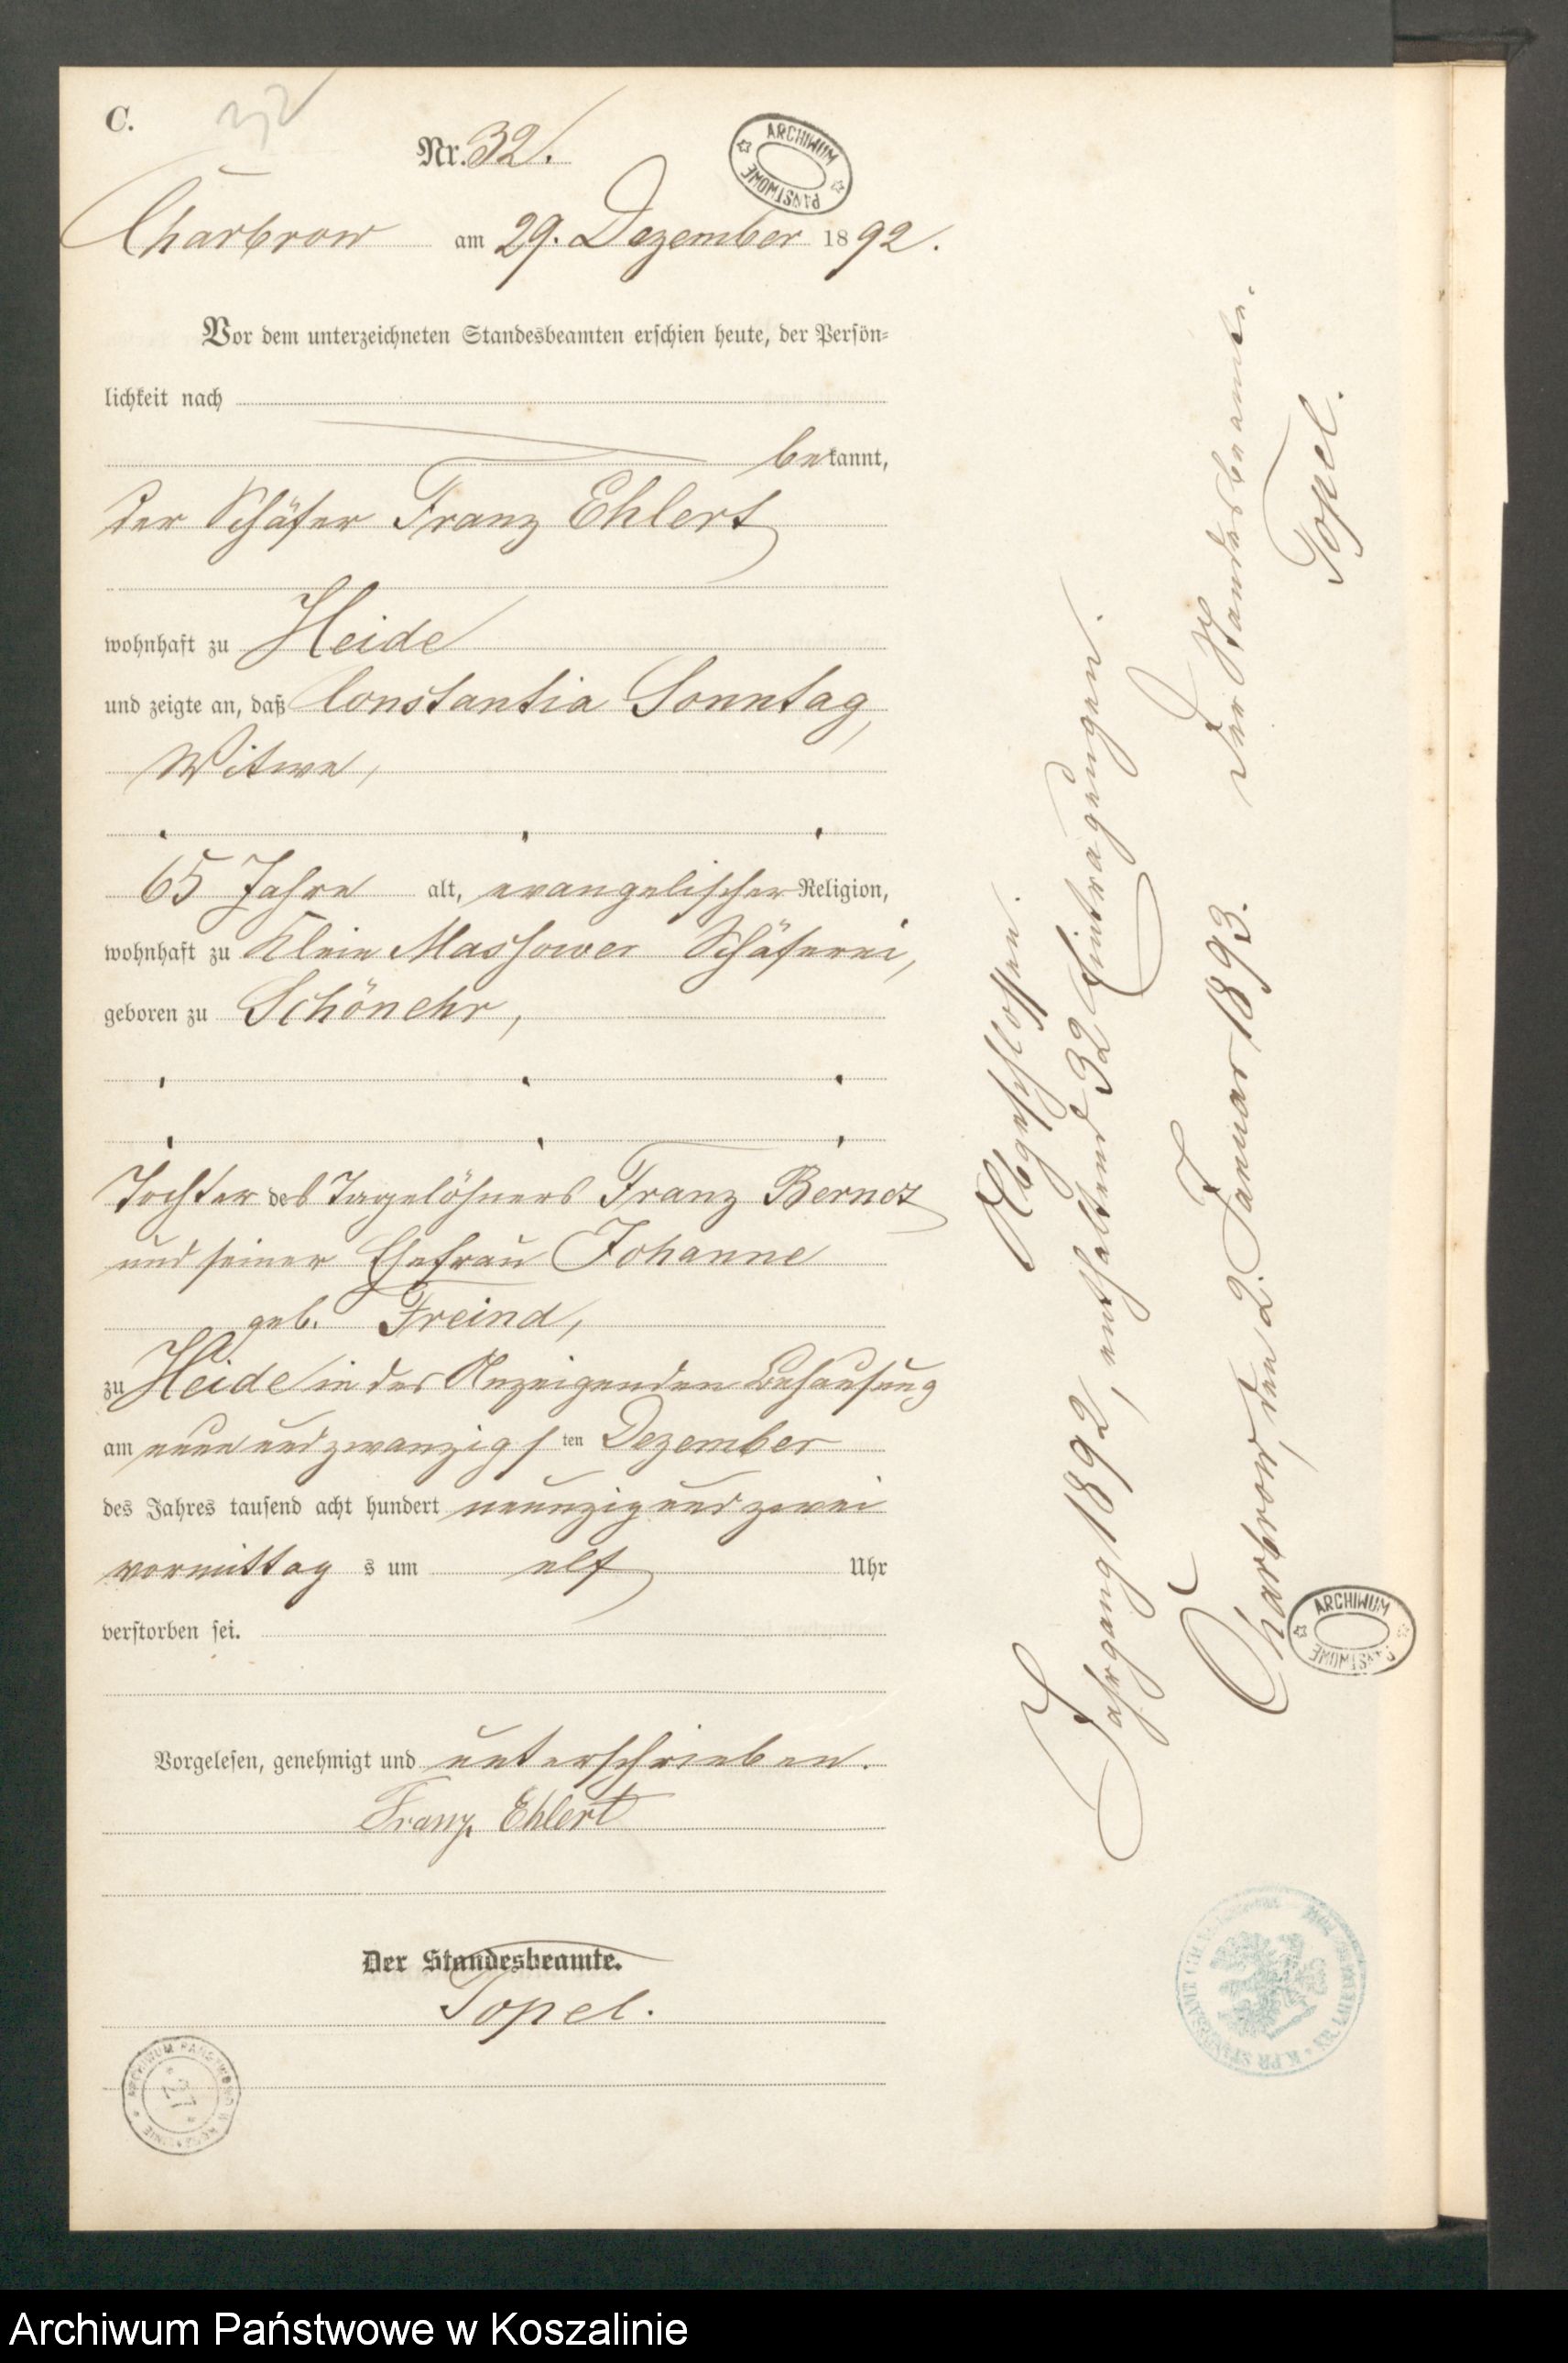 C.
32
Nr. 32.
ARCHIWUM PAŃSTWOWE
Charbrow am 29. Dezember 1892.
Vor dem unterzeichneten Standesbeamten erschien heute, der Persön-
lichkeit nach
bekannt,
der Schäfer Franz Ehlert
wohnhaft zu Heide
und zeigte an, daß Constantia Sonntag,
Witwe,
65 Jahre alt, evangelischer Religion,
wohnhaft zu Klein Massower Schäferei,
geboren zu Schönehr,
Tochter des Tagelöhners Franz
und seiner Ehefrau Johanne
geb. Freind,
zu Heide in des Anzeigenden Behausung
am neun und zwanzigsten Dezember
des Jahres tausend acht hundert neunzig und zwei
vormittags um elf Uhr
verstorben sei.
Vorgelesen, genehmigt und unterschrieben.
Franz Ehlert
Der Standesbeamte.
Topel.
ARCHIWUM PAŃSTWOWE W KOSZALINIE
27
Abgeschlossen.
Jahrgang 1892, enthaltend 32 Eintragungen.
Charbrow, den 2. Januar 1893. Der Standesbeamte.
Topel.
ARCHIWUM PAŃSTWOWE
Archiwum Państwowe w Koszalinie